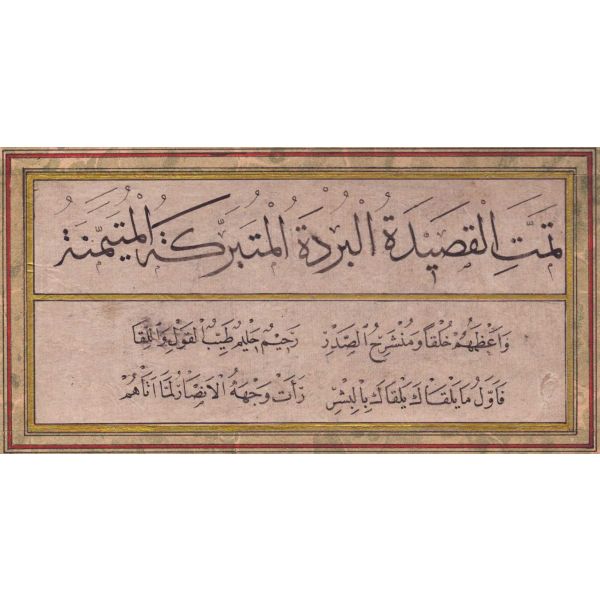 تمَّتِ الْقَصِيْدَةُ الْبُرْدَةُ الْمُتَبَرَّكَةُ الْمُتَيَمَّنَةُ
وَاَعْظَمُهُمْ خُلْقًا وَمُنْشَرِحُ الصَّدْرِ رَحِيْمٌ حَلِيْمٌ طَيِّبُ الْقَوْلِ وَاللِّقَا
فَاَوَّلُ مَا يَلْقَاكَ يَلْقَاكَ بِالْبِشْرِ رَأَتْ وَجْهَهُ الْاَنْصَارُ لَمَّا اَتَاهُمُ